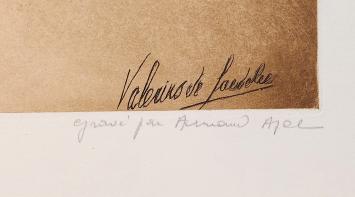 Valerius de Saedeleer
gravé par Armand Apol